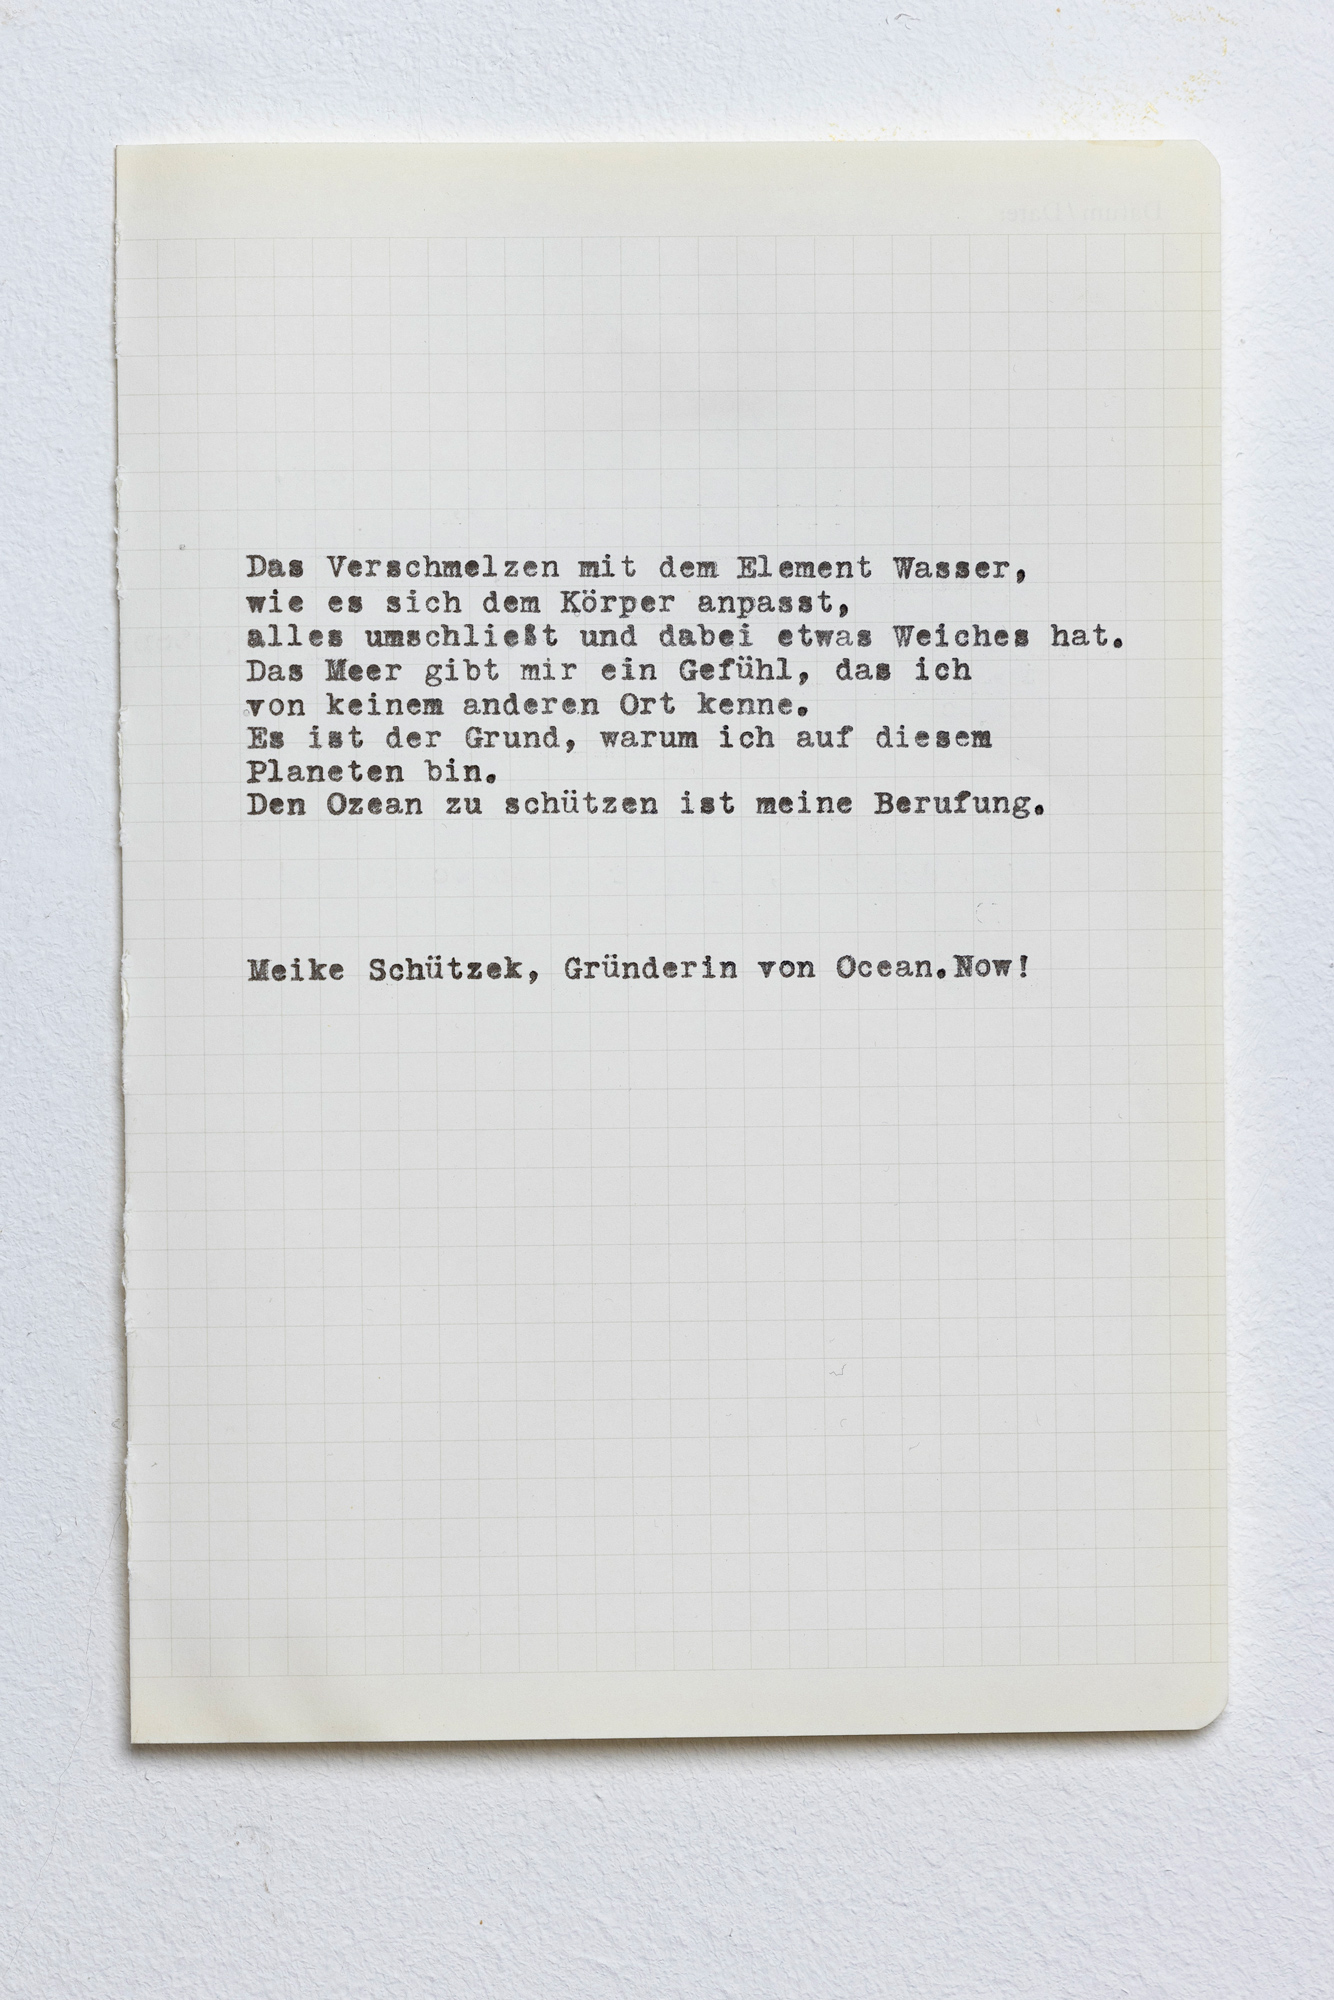 Das Verschmelzen mit dem Element Wasser,
wie es sich dem Körper anpasst,
alles umschließt und dabei etwas Weiches hat.
Das Meer gibt mir ein Gefühl, das ich
von keinem anderen Ort kenne.
Es ist der Grund, warum ich auf diesem
Planeten bin.
Den Ozean zu schützen ist meine Berufung.
Meike Schützek, Gründerin von Ocean.Now!